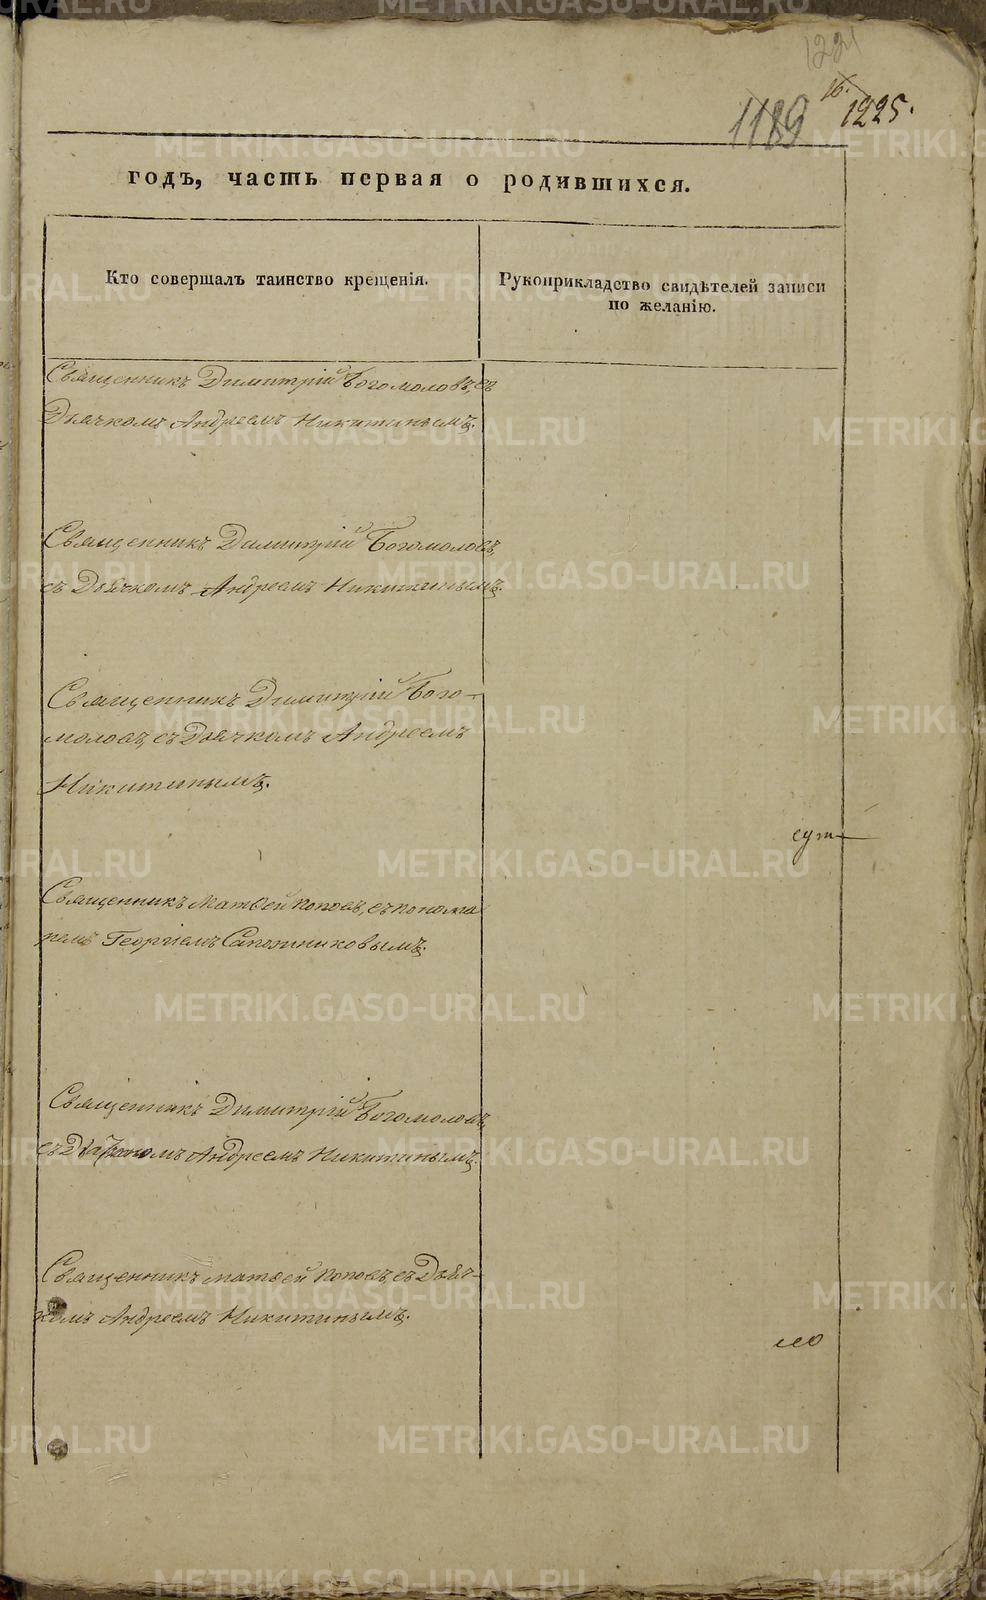 1221
1189
16.
1225.
годъ, часть первая о родившихся.
Кто совершалъ таинство крещенія.
Рукоприкладство свидѣтелей записи
по желанію.
Священникъ Димитрій Богомоловъ, съ
Дьячкомъ Андреемъ Никитинымъ.
Священникъ Димитрій Богомоловъ,
съ Дьячкомъ Андреемъ Никитинымъ.
Священникъ Димитрій Бого-
моловъ, съ Дьячкомъ Андреемъ
Никитинымъ.
сут
Священникъ Матѳей Поповъ, съ понома
ремъ Георгіемъ Сапожниковымъ.
Священникъ Димитрій Богомоловъ,
съ Дьячкомъ Андреемъ Никитинымъ.
Священникъ Матѳей Поповъ, съ Дьяч-
комъ Андреемъ Никитинымъ.
METRIKI.GASO-URAL.RU